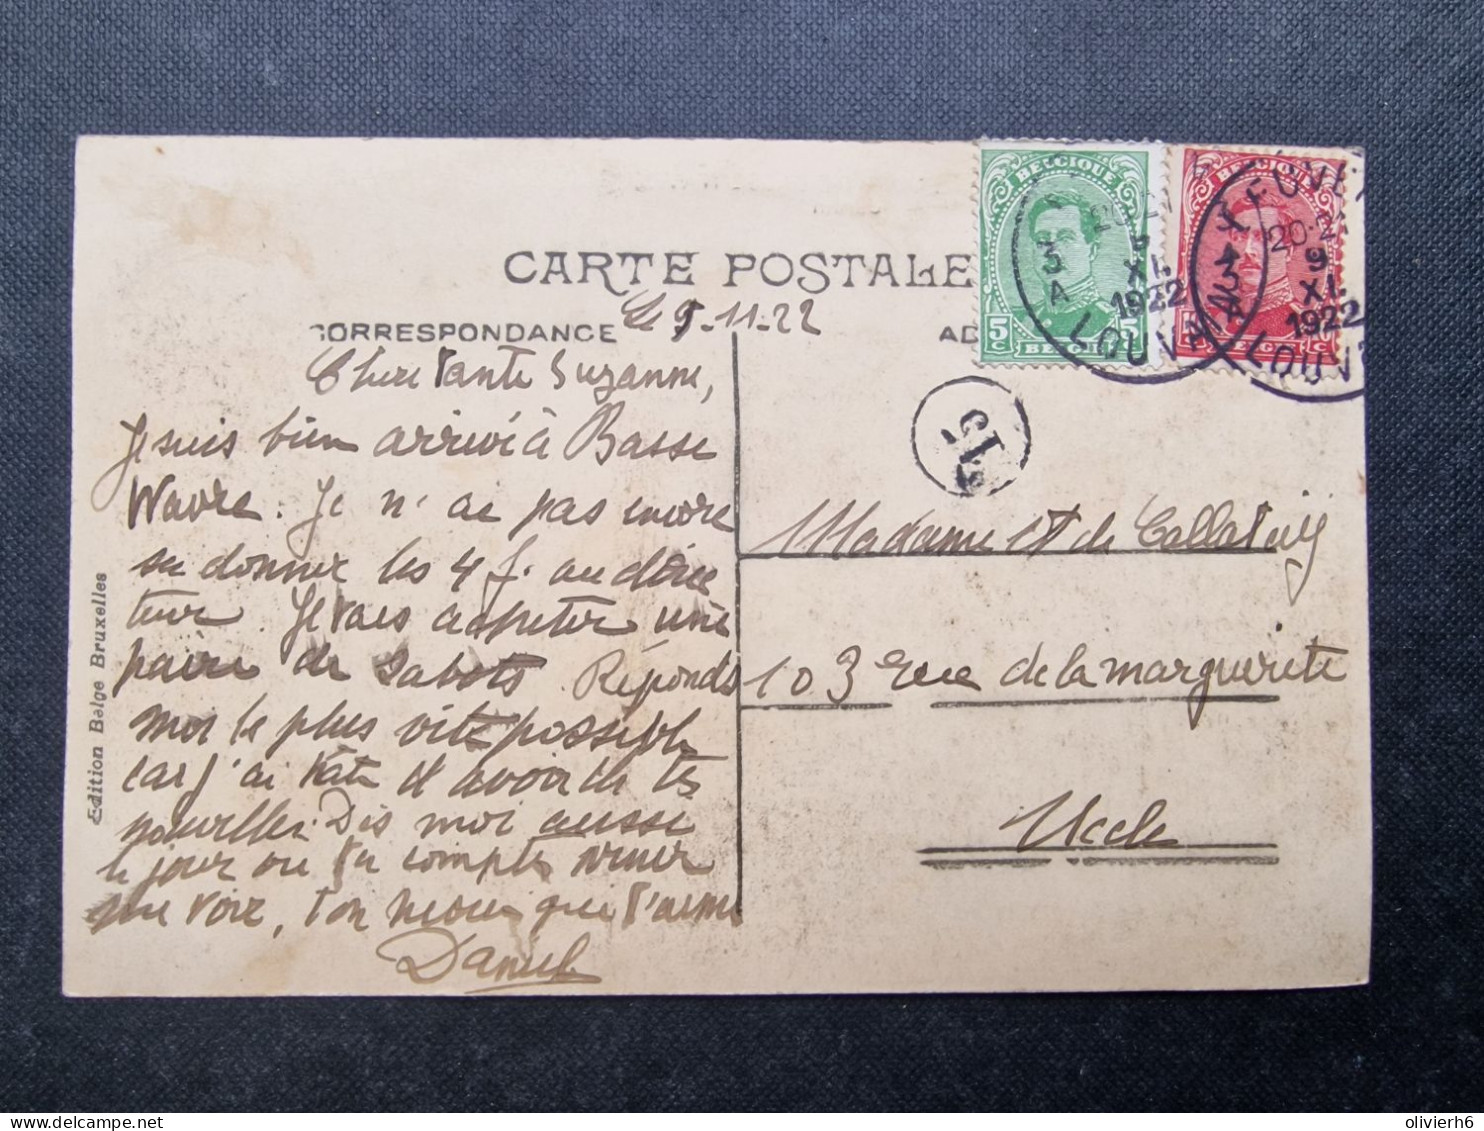 CARTE POSTALE
CORRESPONDANCE
Le 9-11-22
Chere tante Suzanne,
Je suis bien arrivé à Basse
Wavre. Je n'ai pas encore
su donner les 4 f. au direc
teur. Je vais acheter une
paire de sabots. Réponds
moi le plus vite possible
car j'ai hâte d'avoir de tes
nouvelles. Dis moi aussi
le jour ou tu comptes venir
me voir, ton neveu qui t'aime
Daniel
Edition Belge Bruxelles
AD
BELGIQUE
5 5
C C
BELGIE
BELGIQUE
BELGIE
3
A
9
XI
1922
LOUVAIN
LEUVE
20-2
9
XI
1922
LOUV
15
Madame de
103 rue de la marguerite
Uccle
olivierh6